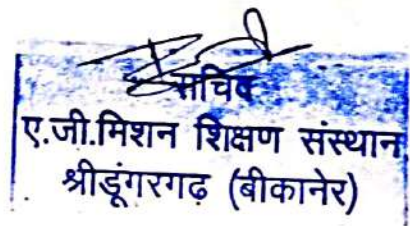 सचिव
ए.जी.मिशन शिक्षण संस्थान
श्रीडूंगरगढ़ (बीकानेर)